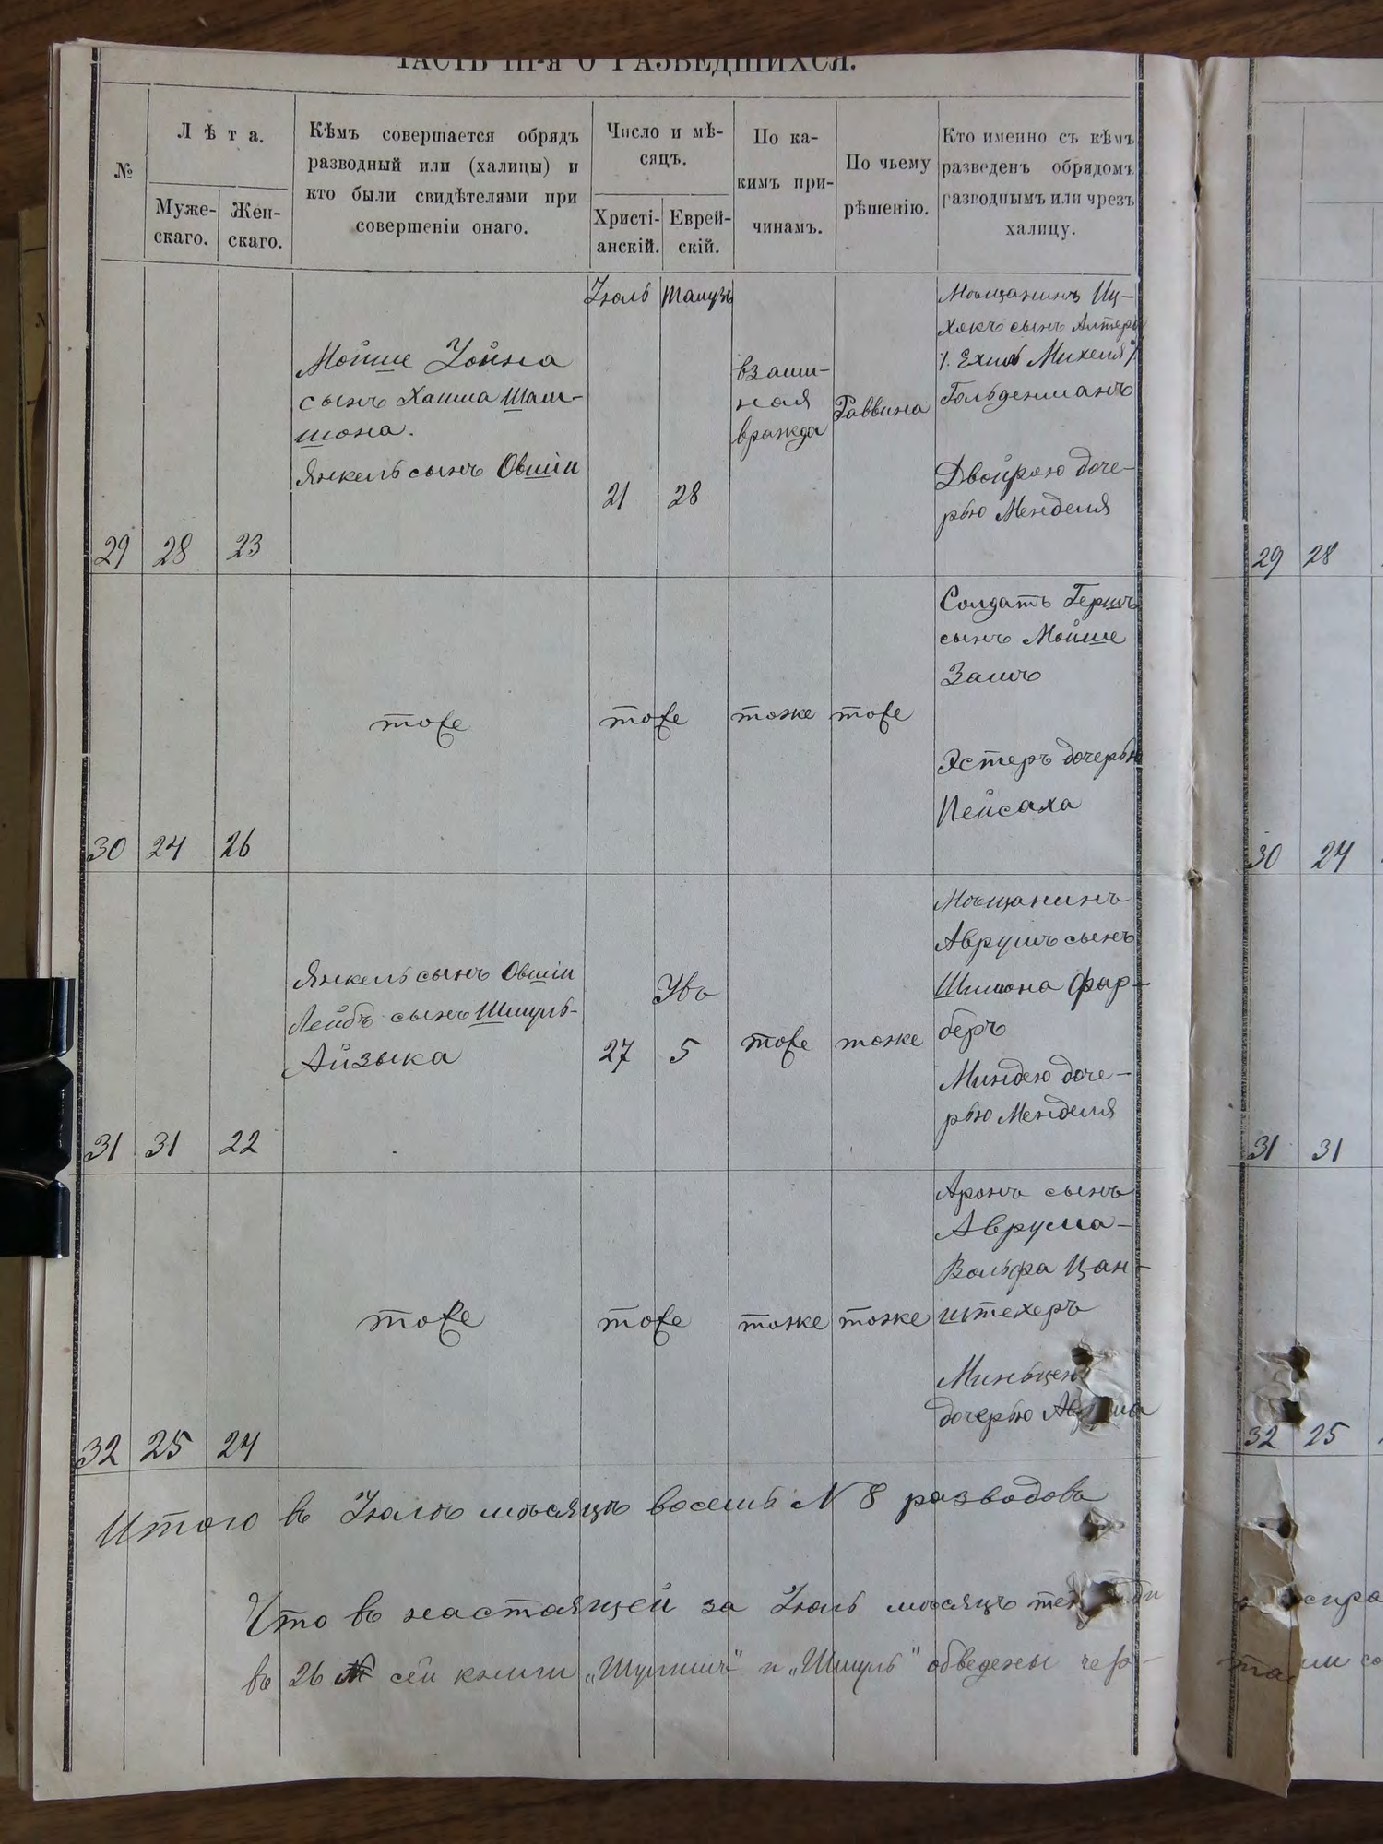 ЧАСТЬ III-я О РАЗВЕДШИХСЯ.
№
Лѣта.
Муже-
скаго.
Жен-
скаго.
Кѣмъ совершается обрядъ
разводный или (халицы) и
кто были свидѣтелями при
совершеніи онаго.
Число и мѣ-
сяцъ.
Христі-
анскій.
Еврей-
скій.
По ка-
кимъ при-
чинамъ.
По чьему
рѣшенію.
Кто именно съ кѣмъ
разведенъ обрядомъ
разводнымъ или чрезъ
халицу.
29
28
23
Мойше Іойна
сынъ Хаима Шам-
шона.
Янкель сынъ Овшіи
Іюль
21
Тамузъ
28
взаим-
ная
вражда
Раввина
Мѣщанинъ Иц-
хокъ сынъ Алтера
/. Ехиль Михеля ./
Гольденманъ
Двойрою доче-
рью Менделя
30
24
26
тоже
тоже
тоже
тоже
Солдатъ Гершъ
сынъ Мойше
Заицъ
Эстеръ дочерью
Пейсаха
31
31
22
Янкель сынъ Овшіи
Лейбъ сынъ Шмуль-
Айзыка
27
Увъ
5
тоже
тоже
Мѣщанинъ
Аврумъ сынъ
Шимона Фар-
беръ
Миндею доче-
рью Менделя
32
25
24
тоже
тоже
тоже
тоже
Аронъ сынъ
Аврума-
Вольфа Цан-
штехеръ
дочерью
Итого въ Іюлѣ мѣсяцѣ восемь № 8 разводовъ
Что въ настоящей за Іюль мѣсяцъ
въ 26 № сей книги „ и „Шмуль" обведены чер-
29 28
30 24
31 31
32 25